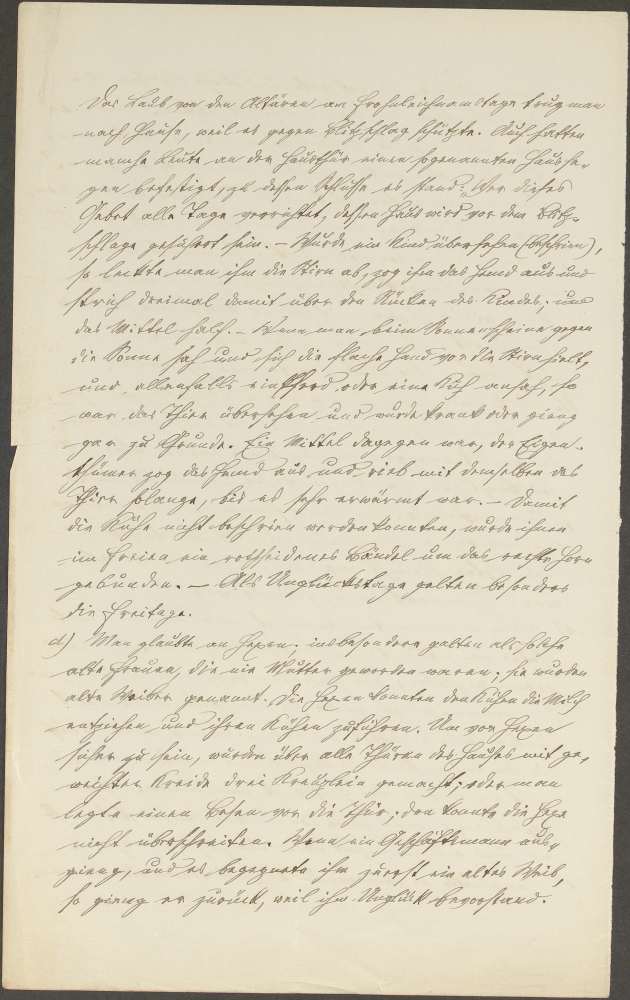 Das Laub von den Altären am Frohnleichnamstage trug man
nach Hause, weil es gegen Blitzschlag schützte. Auch hatten
manche Leute an der Hausthür einen sogenannten Haus[se]-
gen befestigt, zu dessen Schlusse es stand: „Wer dieses
Gebet alle Tage verrichtet, dessen Haus wird vor dem Blitz-
schlage gesichert sein. – Wurde ein Kind übersehen (beschrien),
so leckte man ihm die Stirn ab, zog ihm das Hemd aus und
strich dreimal damit über den Rücken des Kindes; und
das Mittel half. – Wenn man beim Sonnenscheine gegen
die Sonne sah und sich die flache Hand vor die Stirn hielt,
und allenfalls ein Pferd oder eine Kuh ansah, so
war das Thier übersehen und wurde krank oder gieng
gar zu Grunde. Ein Mittel dagegen war, der Eigen-
thümer zog das Hemd aus und rieb mit demselben das
Thier solange, bis es sehr erwärmt war. – Damit
die Kühe nicht beschrien werden konnten, wurde ihnen
im Freien ein rothseidenes Bändel um das rechte Horn
gebunden. – Als Unglückstage galten besonders
die Freitage.
d) Man glaubte an Hexen; insbesondere galten als solche
alte Frauen, die nie Mutter geworden waren; sie wurden
alte Weiber genannt. Die Hexen konnten den Kühen die Milch
entziehen und ihren Kühen zuführen. Um vor Hexen
sicher zu sein, wurden über alle Thüren des Hauses mit ge-
weihter Kreide drei Kreuzlein gemacht; oder man
legte einen Besen vor die Thür; den konnte die Hexe
nicht überschreiten. Wenn ein Geschäftsmann aus-
gieng, und es begegnete ihm zuerst ein altes Weib,
so gieng er zurück, weil ihm Unglück bevorstand.